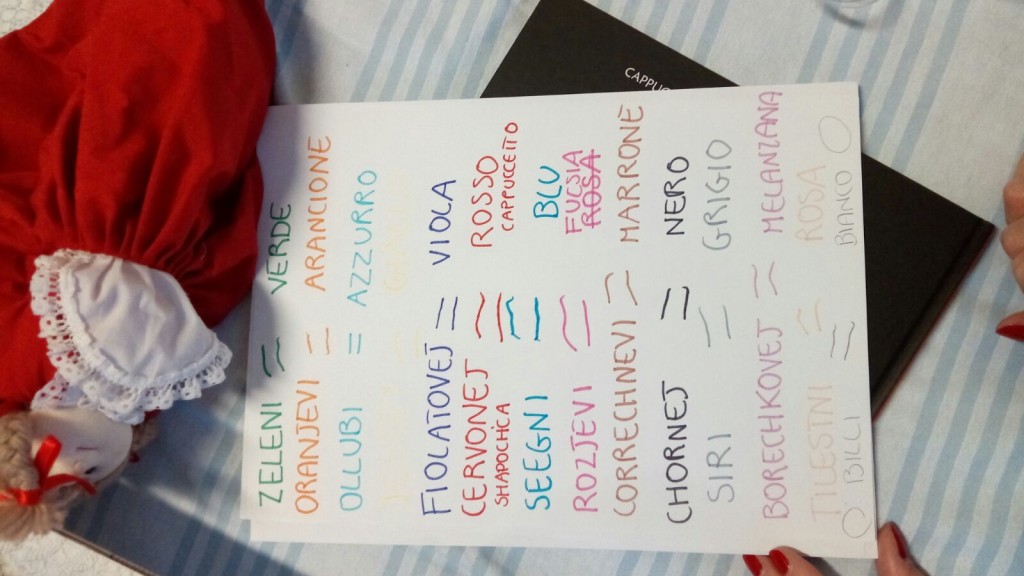 CAPPUC
ZELENI = VERDE
ORANJEVI = ARANCIONE
OLLUBI = AZZURRO
FIOLATOVEJ = VIOLA
CERVONEJ = ROSSO
SHAPOCHCA = CAPPUCCETTO
SEEGNI = BLU
ROZJEVI = FUCSIA ROSA
CORRECHNEVI = MARRONE
CHORNEJ = NERO
SIRI = GRIGIO
BORECHKOVEJ = MELANZANA
TILESTNI = ROSA
BILLI = BIANCO